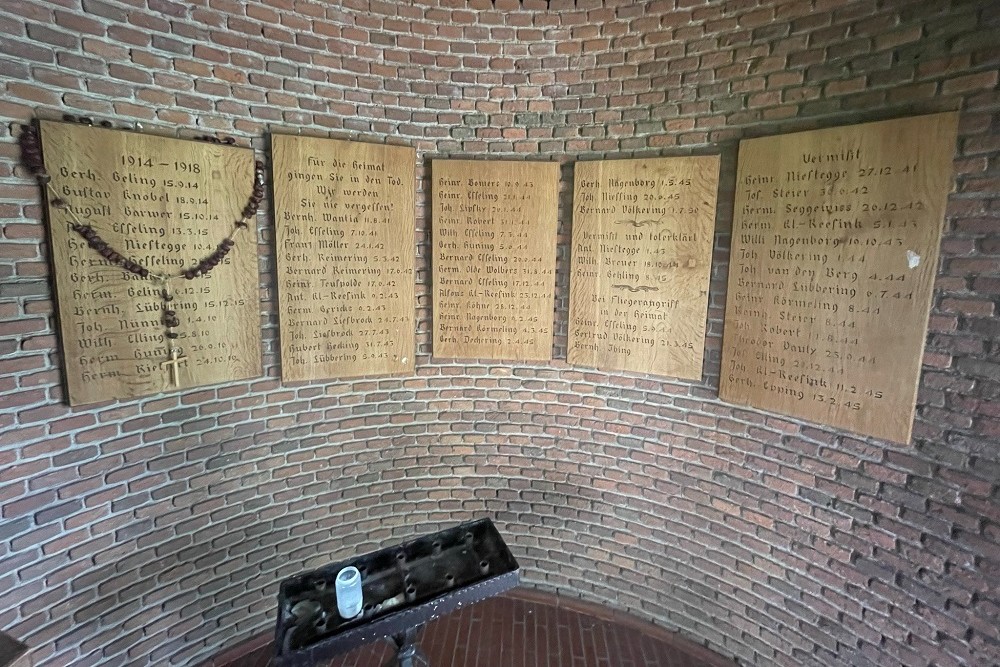 1914 – 1918
Gerh. Geling 15.9.14
Gustav Knobel 18.9.14
August Barwer 15.10.14
Esseling 13.3.15
Nießegge
Hermann Esseling
Gerh.
Herm. Geling 12.15
Bernh. Lübbering 15.12.15
Joh. Nünn 1.4.16
Wilh. Elling
Herm.
Herm. 24.10.18
Für die Heimat
gingen Sie in den Tod.
Wir werden
Sie nie vergessen!
Bernh. Wantia 11.8.41
Joh. Esseling 7.10.41
Franz Möller 24.1.42
Gerh. Reimering 5.3.42
Bernard Reimering 17.0.42
Heinr. Teuspolde 17.0.42
Ant. Kl-Reesink 0.2.43
Herm. Gericks 6.2.43
Bernard Liesbrock 24.7.43
Joh. Liesbrock 27.7.43
Hubert Hecking 31.7.43
Joh. Lübbering 5.9.43
Heinr. Bemers 10.9.43
Heinr. Esseling 20.1.44
Joh. 20.1.44
Heinr. Robert 31.1.44
Wilh. Esseling 7.3.44
Gerh. Hüning 5.6.44
Bernard Esseling 20.6.44
Herm. Olde Wolbers 31.8.44
Bernard Esseling 17.12.44
Alfons Kl-Reesink 23.12.44
Jos. Söhner 28.12.44
Heinr. Nagenborg 4.2.45
Bernard Körmeling 4.3.45
Gerh. Deckering 2.4.45
Gerh. Nagenborg 1.5.45
Joh. Nießing 20.9.45
Bernard Völkering 1.7.50
Vermißt und toterklärt
Ant. Nießegge 1.43
Willi Breuer 18.10.44
Heinr. Gehling 8.45
Bei Fliegerangriff
in der Heimat
Heinr. Esseling 5.9.44
Gertrud Völkering 21.3.45
Bernh. Ibing
Vermißt
Heinr. Nießegge 27.12.41
Jos. Steier 30.6.42
Herm. Seggewiss 20.12.42
Herm. Kl-Reesink 5.1.43
Willi Nagenborg 10.10.43
Joh. Völkering 1.44
Joh. van der Berg 4.44
Bernard Lübbering 6.7.44
Heinr. Körmeling 8.44
Bernh. Steier 8.44
Joh. Robert 8.44
Theodor Pauly 23.9.44
Joh. Elling 27.12.44
Joh. Kl-Reesink 11.2.45
Gerh. Epping 13.2.45